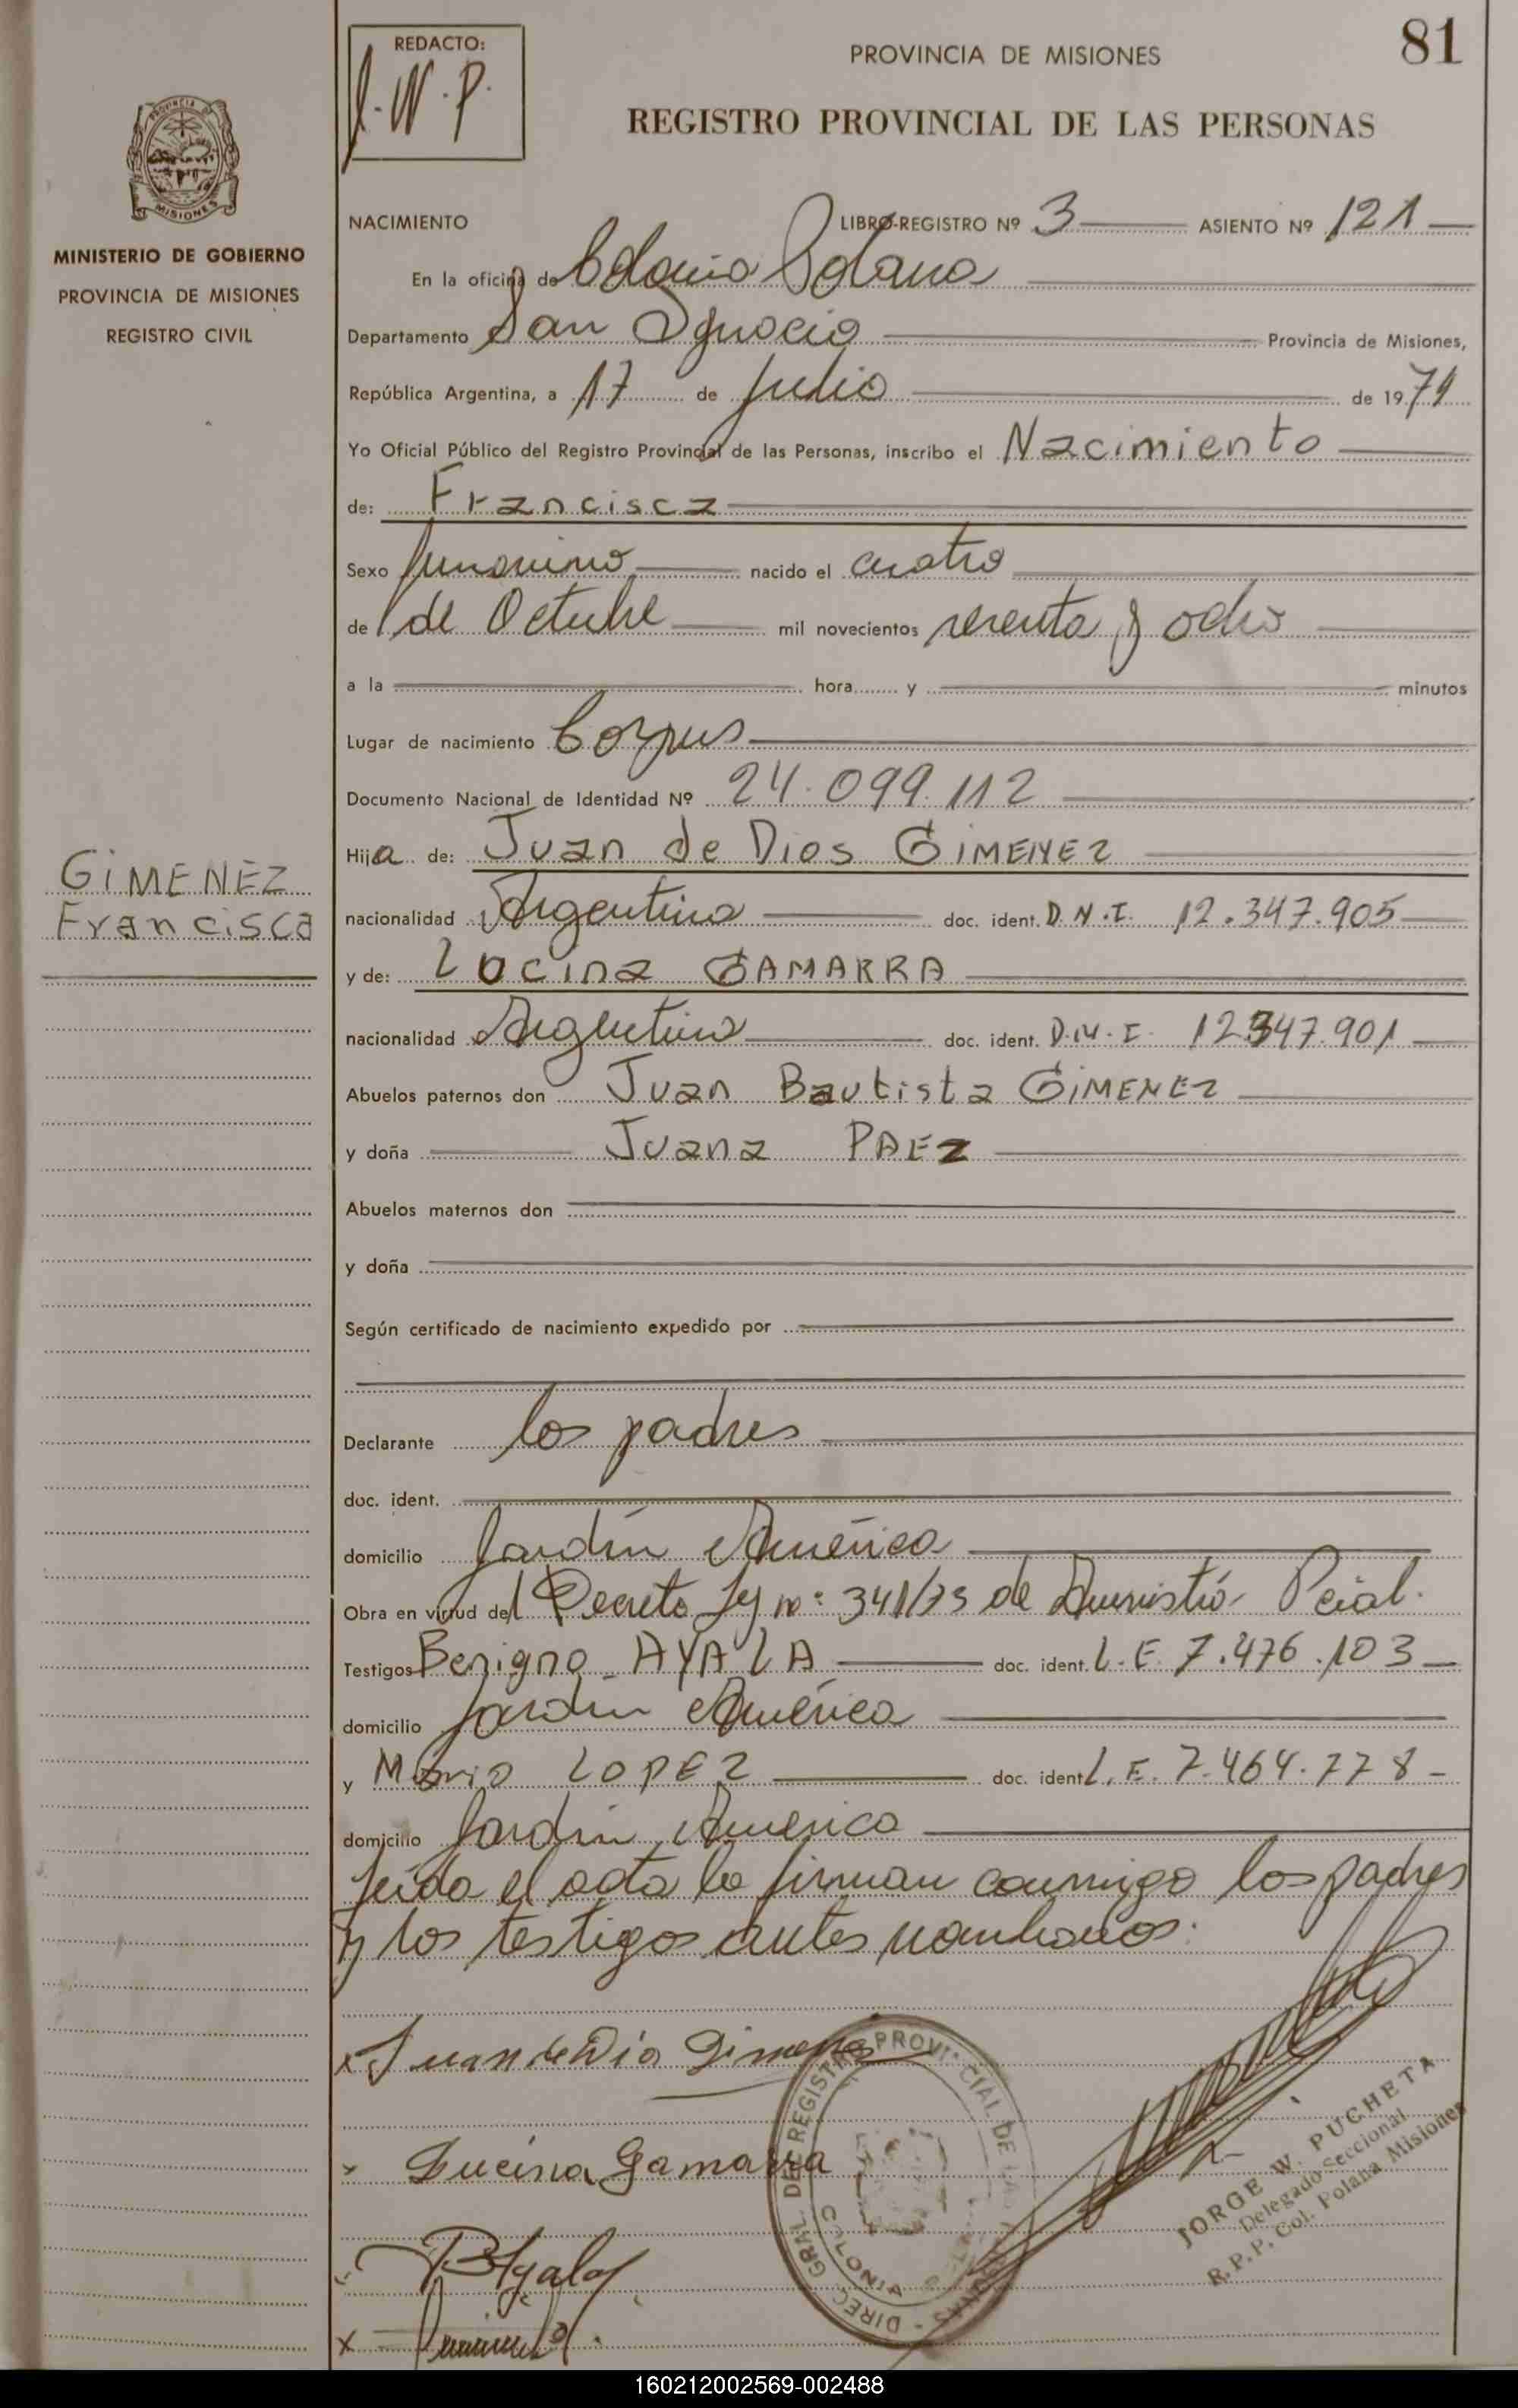 REDACTO:
J.W.P.
PROVINCIA DE MISIONES
81
REGISTRO PROVINCIAL DE LAS PERSONAS
PROVINCIA DE
MISIONES
MINISTERIO DE GOBIERNO
PROVINCIA DE MISIONES
REGISTRO CIVIL
NACIMIENTO LIBRO-REGISTRO Nº 3 ASIENTO Nº 121
En la oficina de Colonia Polana
Departamento San Ignacio Provincia de Misiones,
República Argentina, a 17 de Julio de 1971
Yo Oficial Público del Registro Provincial de las Personas, inscribo el Nacimiento
de: Francisca
Sexo femenino nacido el cuatro
de de Octubre mil novecientos sesenta y ocho
a la hora y minutos
Lugar de nacimiento Corpus
Documento Nacional de Identidad Nº 24.099.112
Hija de: Juan de Dios GIMENEZ
GIMENEZ
Francisca
nacionalidad Argentina doc. ident. D.N.I. 12.347.905
y de: Lucina GAMARRA
nacionalidad Argentina doc. ident. D.N.I. 12.347.901
Abuelos paternos don Juan Bautista GIMENEZ
y doña Juana PAEZ
Abuelos maternos don
y doña
Según certificado de nacimiento expedido por
Declarante los padres
doc. ident.
domicilio Jardín América
Obra en virtud del Decreto Ley nº: 341/73 de Amnistía Pcial.
Testigos Benigno AYALA doc. ident. L.E. 7.476.103
domicilio Jardín América
y Mario LOPEZ doc. ident L.E. 7.464.778
domicilio Jardín América
Leída el acta la firman conmigo los padres
y los testigos antes nombrados.
x Juan de Dio Gimenez
x Lucina Gamarra
BAyala
x
DIREC. GRAL. DEL REGISTRO PROVINCIAL DE LAS PERSONAS
COLONIA
JORGE W. PUCHETA
Delegado Seccional
R.P.P. Col. Polana Misiones
160212002569-002488